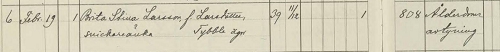 6 Febr. 19 1 Brita Stina Larsson, f. Larsdotter, 39 11/12 1 808 Ålderdoms
snickareänka Tybble ägor avtyning